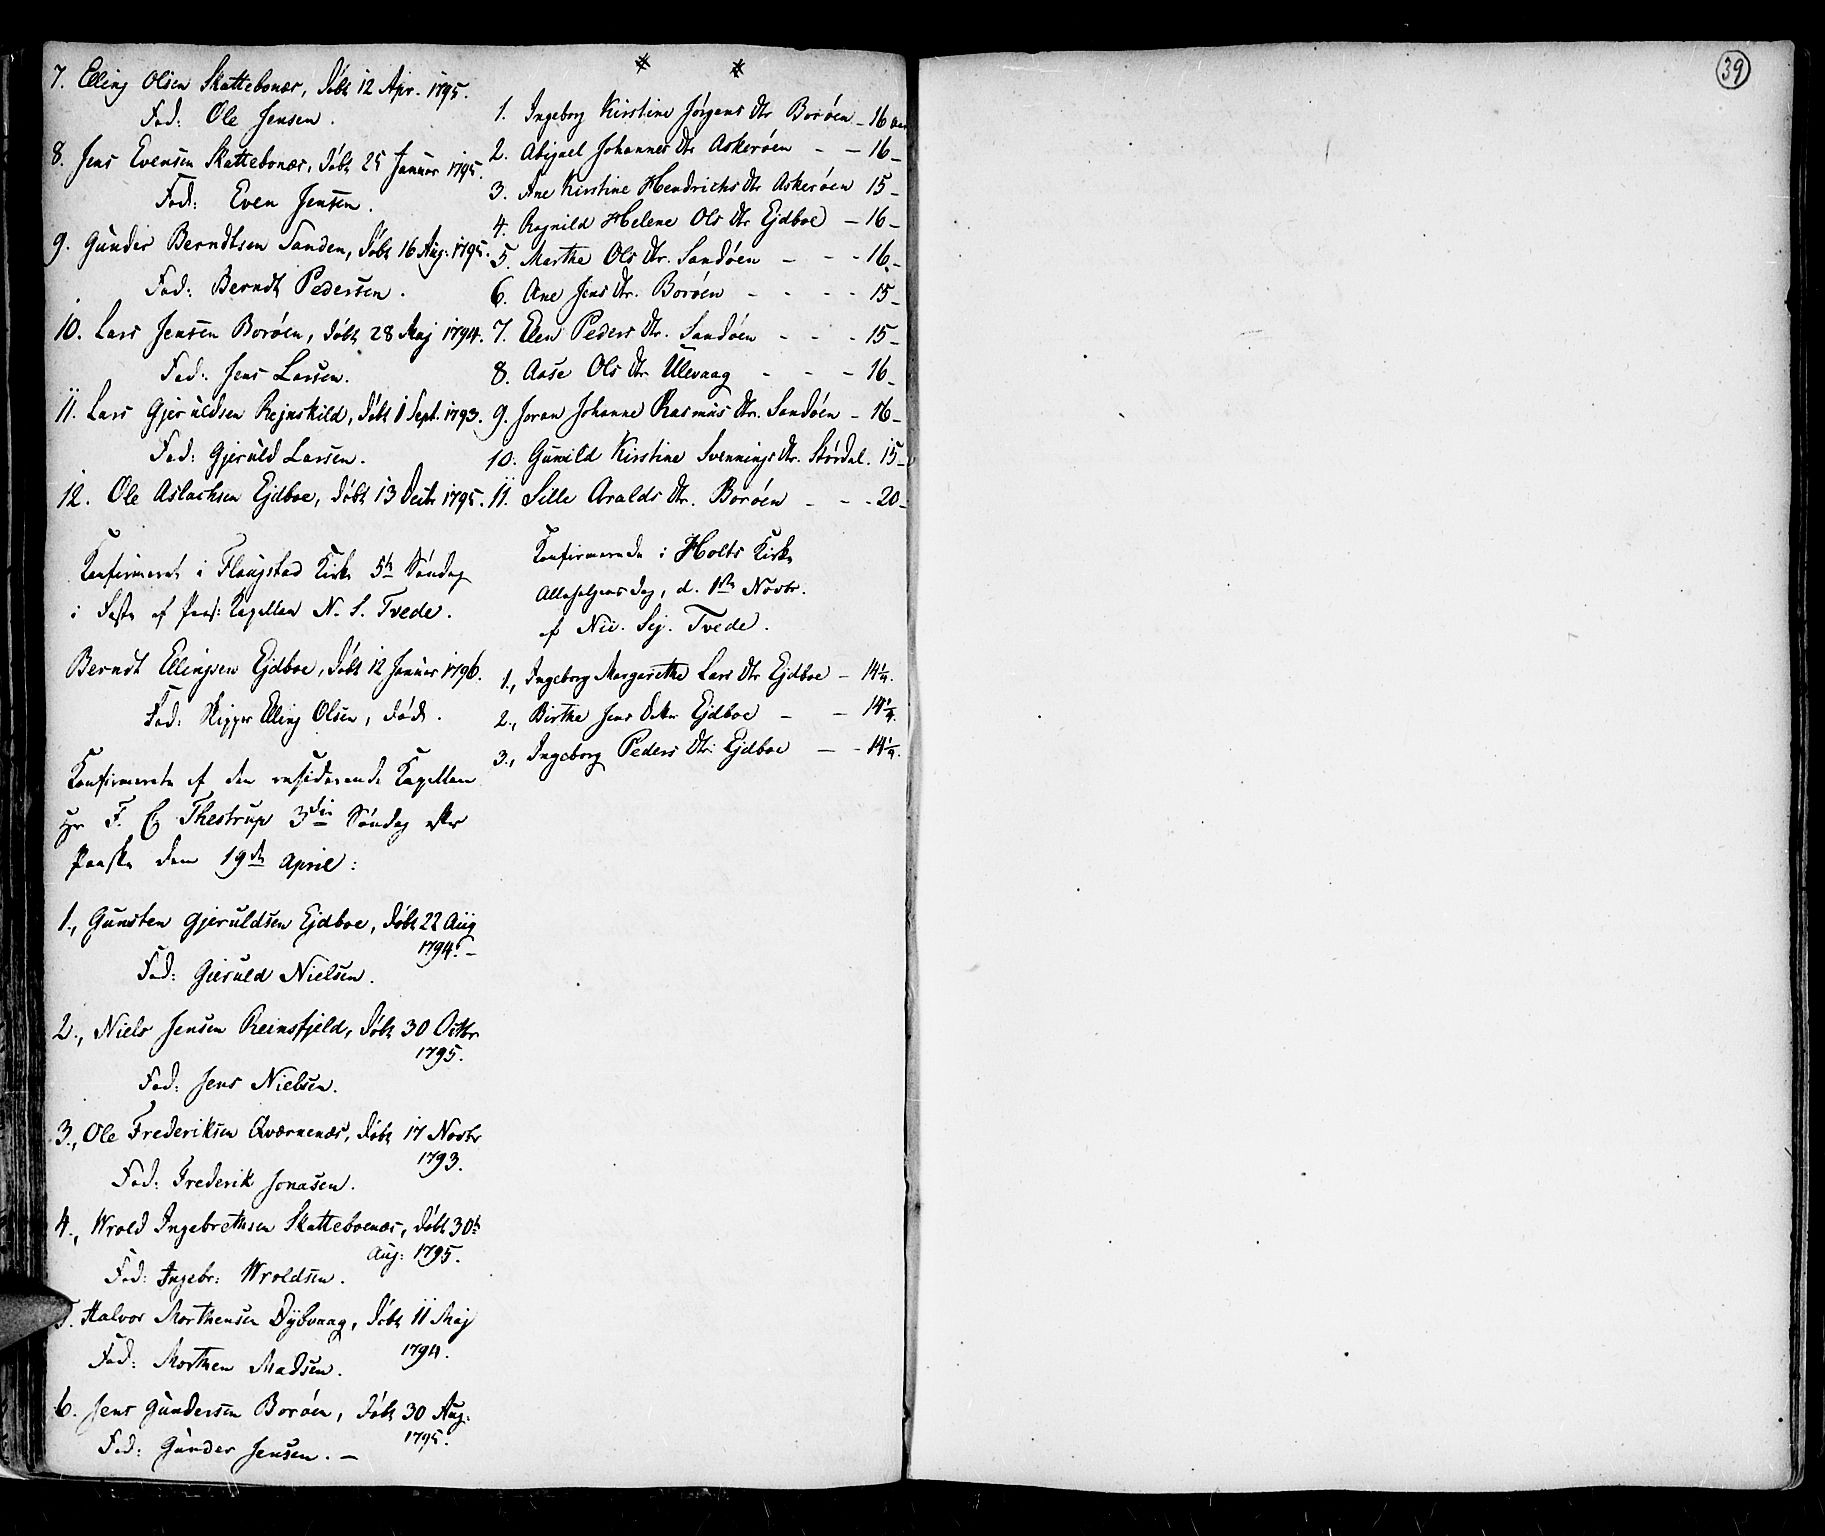 7. Elling Olsen Skattebonæs, døbt 12 Apr. 1795.
Fad: Ole Jensen.
8. Jens Evensen Skattebonæs, døbt 25 Januar 1795.
Fad: Even Jensen.
9. Gunder Berndtsen Sanden, døbt 16 Aug: 1795.
Fad: Berndt Pedersen.
10. Lars Jensen Borøen, døbt 28 Maj 1794.
Fad: Jens Larsen.
11. Lars Gjeruldsen Rejnskild, døbt 1 Sept. 1793.
Fad: Gjeruld Larsen.
12. Ole Aslachsen Ejdboe, døbt 13 Decbr 1795.
Konfirmeret i Flaugstad Kirke 5te Søndag
i Faste af Pers: Kapellan N. S. Tvede.
Berndt Ellingsen Ejdboe, døbt 12 Januar 1796.
Fad: Skipper Elling Olsen, død.
Konfirmerte af den residerende Kapellan
Hr F. C Thestrup 3die Søndag efter
Paaske den 19de April:
1., Gunsten Gjeruldsen Ejdboe, døbt 22 Aug
1794. –
Fad: Gjeruld Nielsen.
2., Niels Jensen Reinsfjeld, døbt 30 Octbr
1795.
Fad: Jens Nielsen.
3., Ole Frederiksen Qværnenæs, døbt 17 Novbr
1793.
Fad: Frederik Jonasen.
4., Wrold Ingebrethsen Skatteboenæs, døbt 30te
Aug: 1795.
Fad: Ingebr: Wroldsen.
5. Halvor Morthensen Dybvaag, døbt 11 Maj
1794.
Fad: Morthen Madsen.
6. Jens Gundersen Borøen, døbt 30 Aug:
1795.
Fad: Gunder Jensen. –
# #
1. Ingeborg Kirstine Jørgens Dtr Borøen – 16 aar
2. Abigael Johannes Dtr Askerøen – – 16 –
3. Ane Kirstine Hendrichs Dtr Askerøen 15 –
4. Ragnild Helene Ols Dtr Ejdboe – 16 –
5. Marthe Ols Dtr. Sandøen – – – 16 –
6. Ane Jens Dtr. Borøen – – – – 15 –
7. Elen Peders Dtr. Sandøen – – – 15 –
8. Aase Ols Dtr Ulevaag – – – 16 –
9. Joran Johanne Rasmus Dtr. Sandøen – 16 –
10. Gunild Kirstine Svennings Dtr. Størdal. 15 –
11. Sille Aralds Dtr. Borøen – – – 20 –
Konfirmerede i Holts Kirke
Allehelgens Dag, d. 1ste Novbr.
af Nii. Sej. Tvede.
1., Ingeborg Margarethe Lars Dtr Ejdboe – 14¼.
2., Birthe Jens Datter Ejdboe – – 14¼.
3., Ingeborg Peders Dtr: Ejdboe – – 14¼.
39